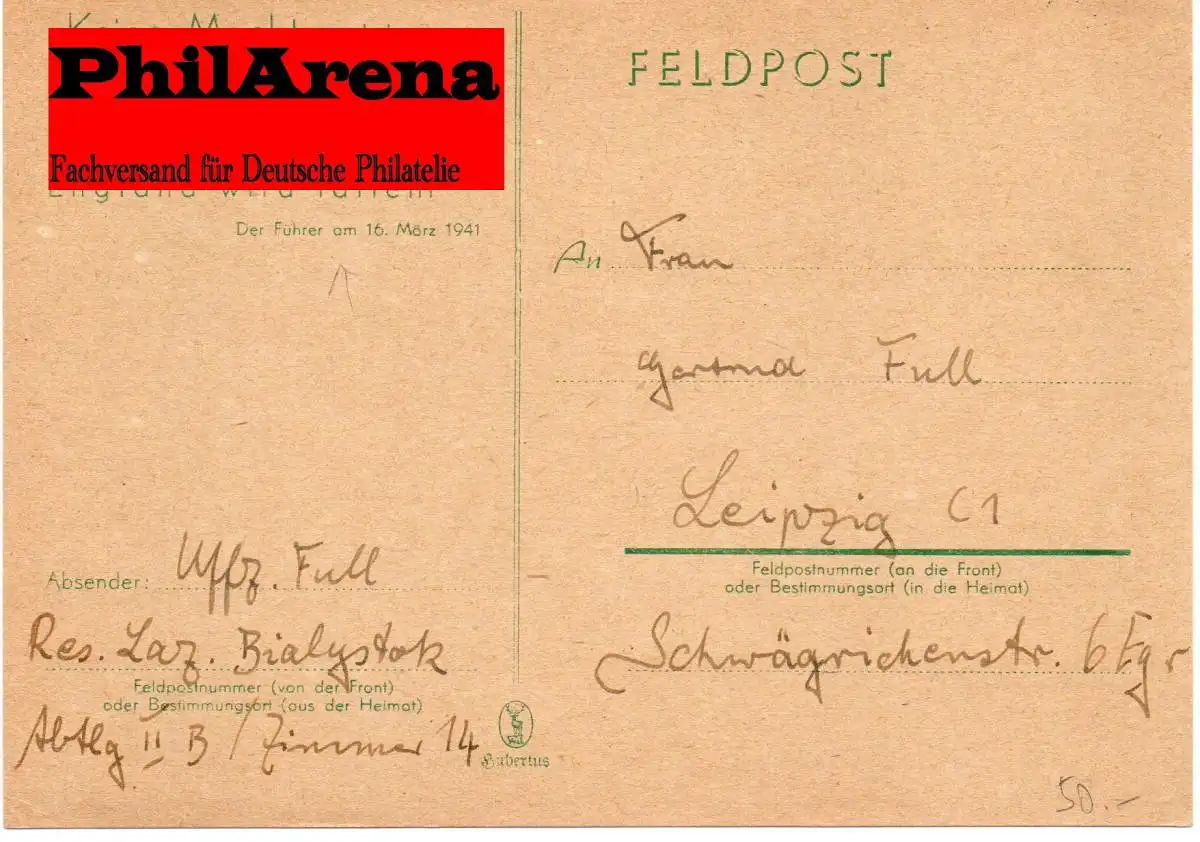 PhilArena
Fachversand für Deutsche Philatelie
England wird fallen
Der Führer am 16. März 1941
FELDPOST
An Frau
Gertrud Full
Leipzig C1
Feldpostnummer (an die Front)
oder Bestimmungsort (in die Heimat)
Schwägrichenstr. 6 Egr
Absender: Uffz. Full
Res. Laz. Bialystok
Feldpostnummer (von der Front)
oder Bestimmungsort (aus der Heimat)
Abtlg II B / Zimmer 14
Hubertus
50.-